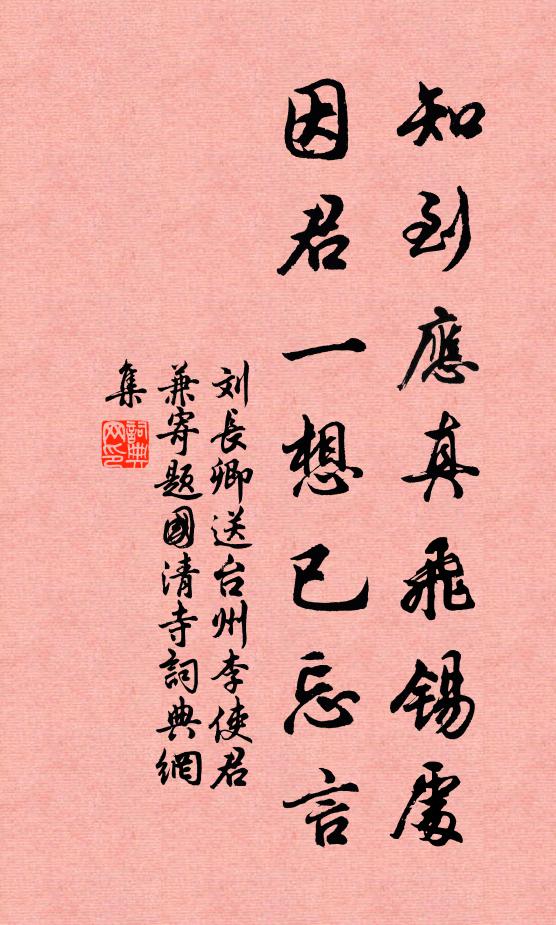 知到應真飛錫處
因君一想已忘言
刘長卿送台州李使君
兼寄題國清寺詞典網
集
詞典
网印